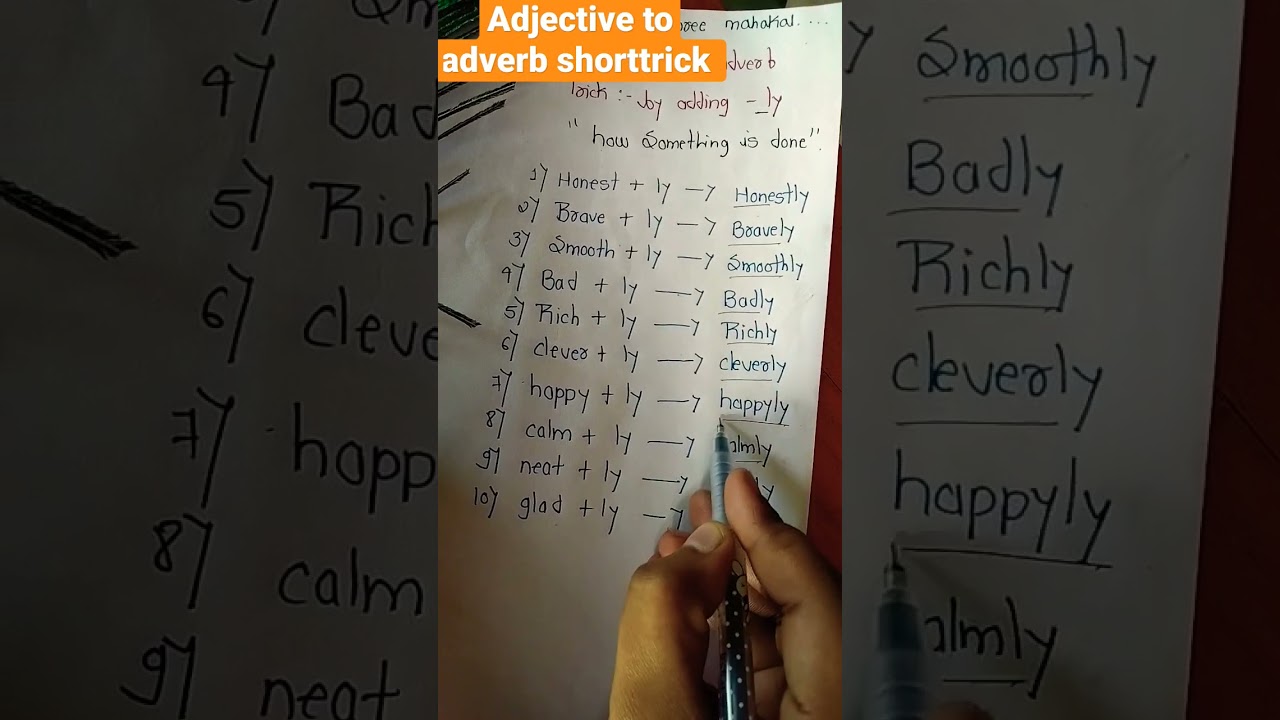 Adjective to
adverb shorttrick
ree mahakal....
adverb
trick :- by adding -ly
"how Something is done".
1) Honest + ly → Honestly
2) Brave + ly → Bravely
3) Smooth + ly → Smoothly
4) Bad + ly → Badly
5) Rich + ly → Richly
6) clever + ly → cleverly
7) happy + ly → happyly
8) calm + ly → almly
9) neat + ly → ly
10) glad + ly →
4) Bad
5) Rich
6) cleve
7) happ
8) calm
9) neat
Smoothly
Badly
Richly
cleverly
happyly
almly